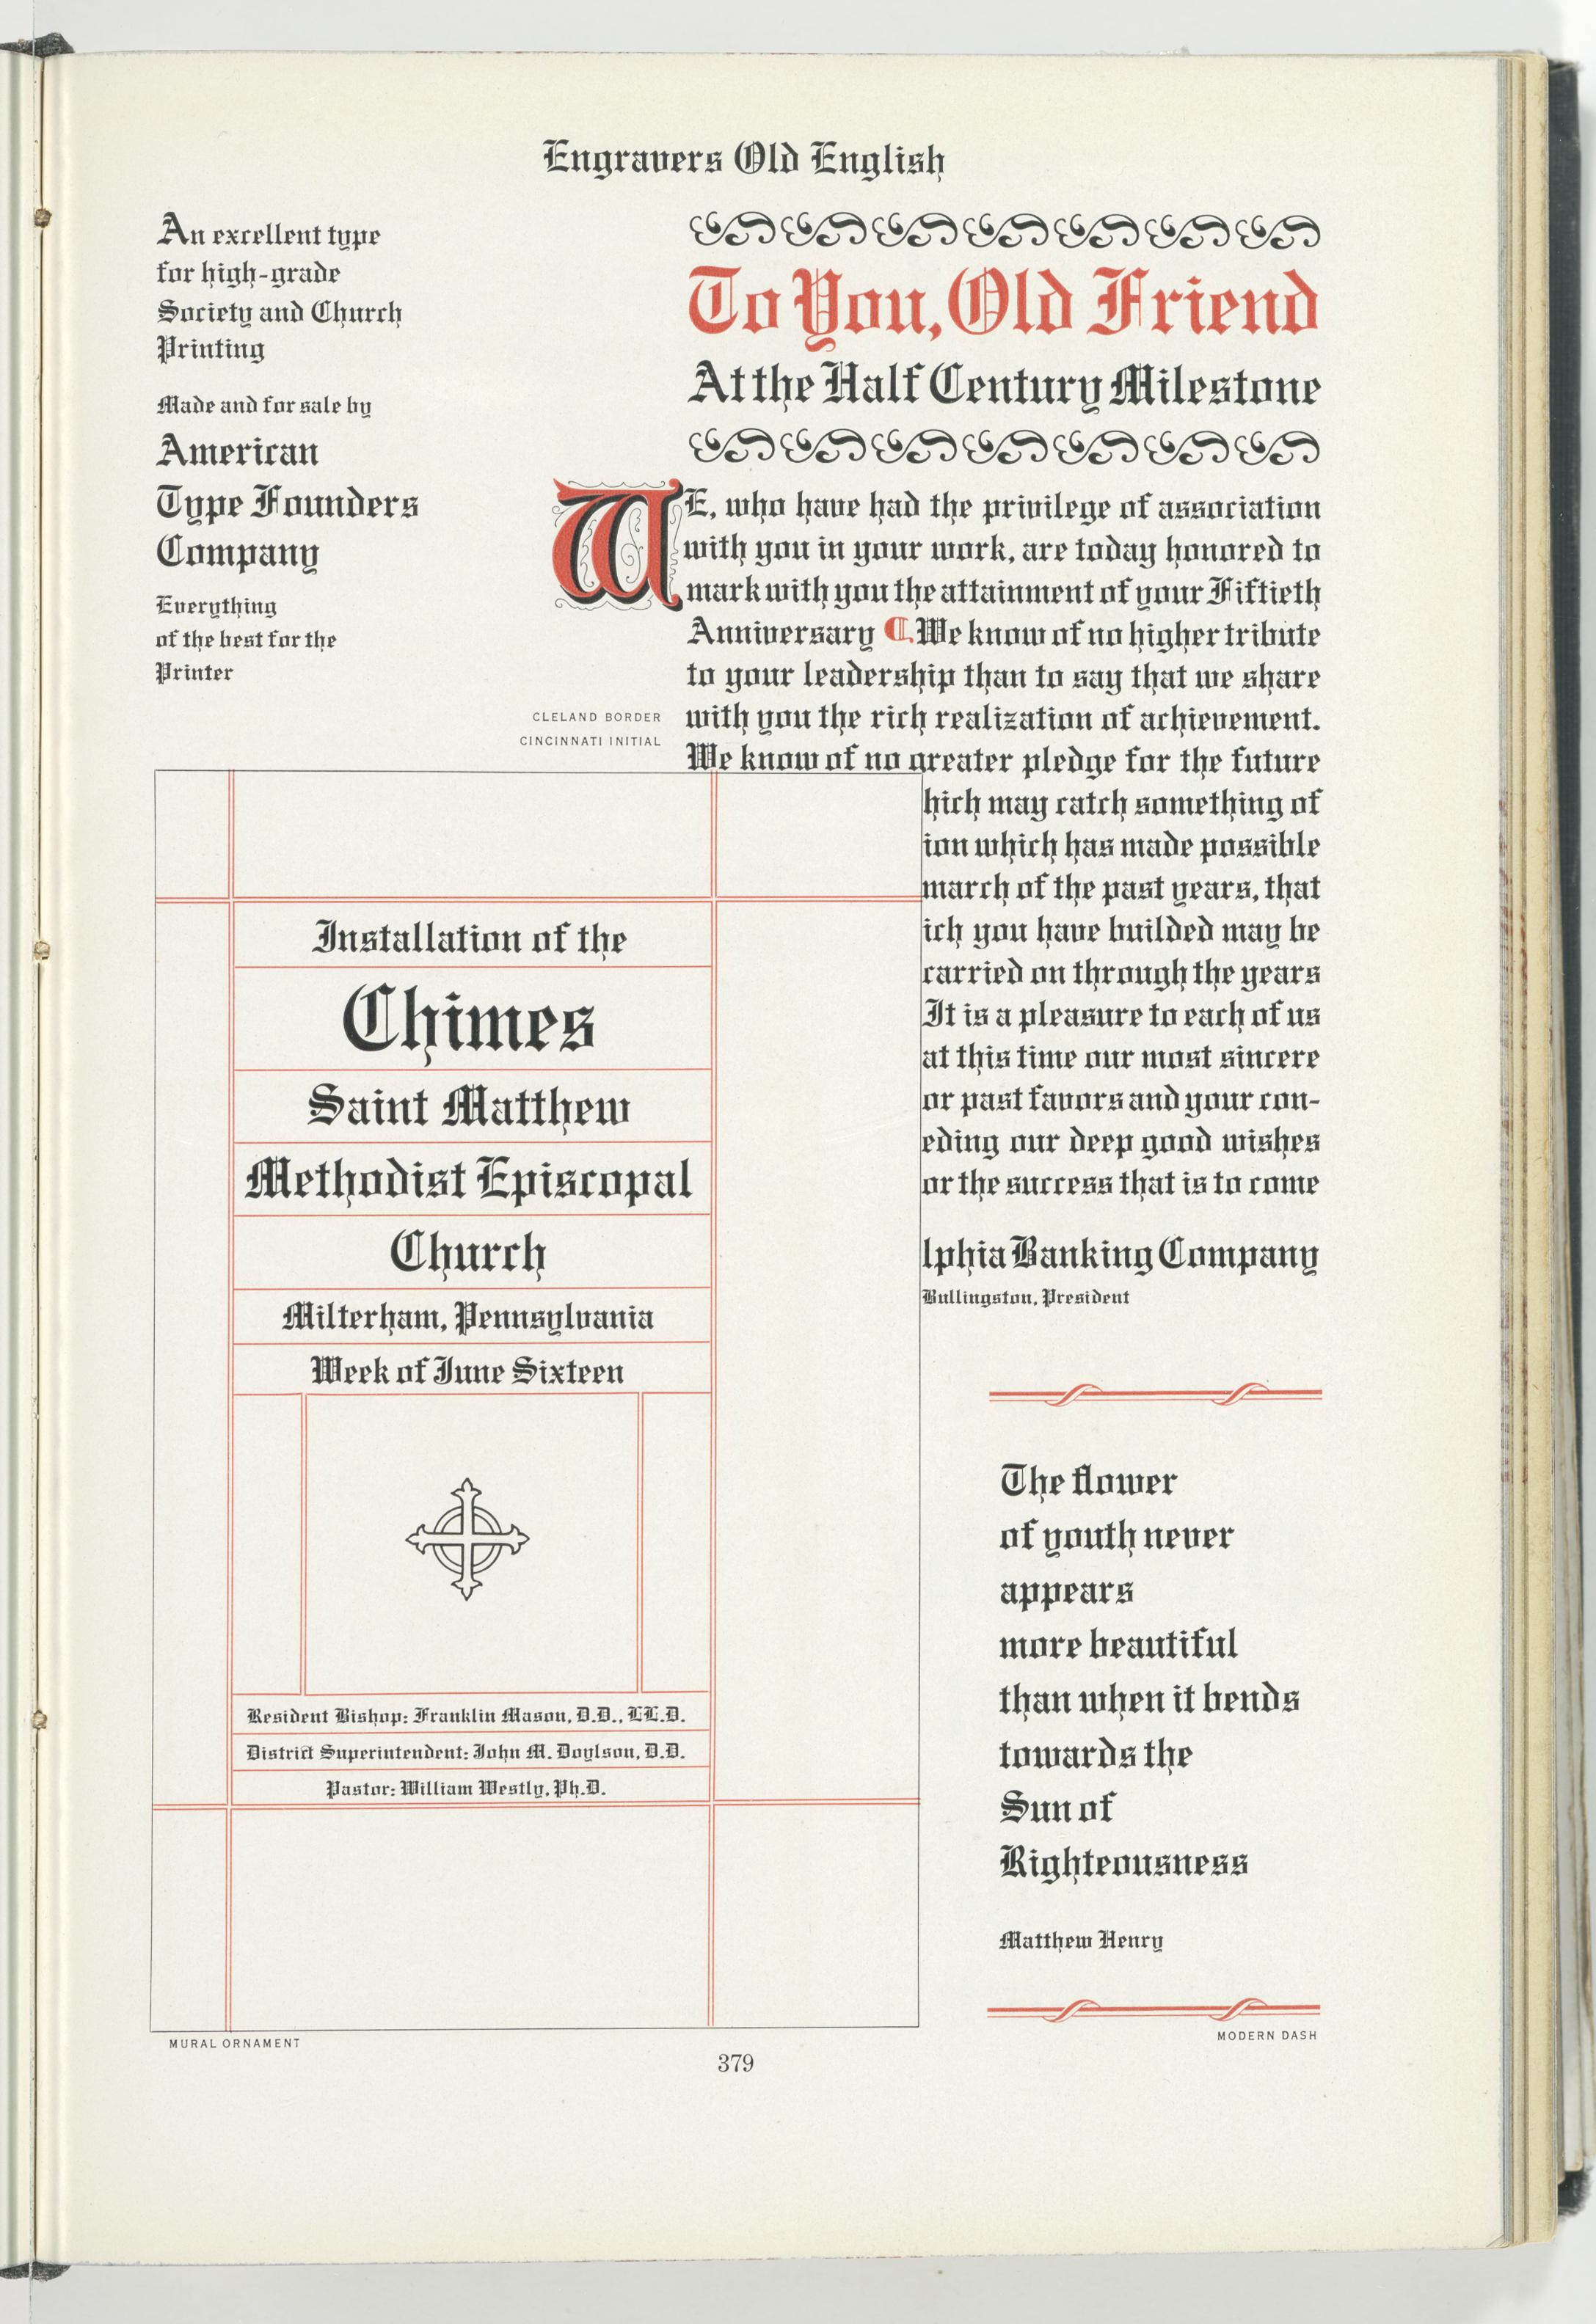 Engravers Old English
An excellent type
for high-grade
Society and Church
Printing
Made and for sale by
American
Type Founders
Company
Everything
of the best for the
Printer
To You, Old Friend
At the Half Century Milestone
WE, who have had the privilege of association
with you in your work, are today honored to
mark with you the attainment of your Fiftieth
Anniversary ¶ We know of no higher tribute
to your leadership than to say that we share
with you the rich realization of achievement.
We know of no greater pledge for the future
hich may catch something of
ion which has made possible
march of the past years, that
ich you have builded may be
carried on through the years
It is a pleasure to each of us
at this time our most sincere
or past favors and your con-
eding our deep good wishes
or the success that is to come
lphia Banking Company
Bullingston, President
CLELAND BORDER
CINCINNATI INITIAL
Installation of the
Chimes
Saint Matthew
Methodist Episcopal
Church
Milterham, Pennsylvania
Week of June Sixteen
Resident Bishop: Franklin Mason, D.D., LL.D.
District Superintendent: John M. Doylson, D.D.
Pastor: William Westly, Ph.D.
MURAL ORNAMENT
The flower
of youth never
appears
more beautiful
than when it bends
towards the
Sun of
Righteousness
Matthew Henry
MODERN DASH
379